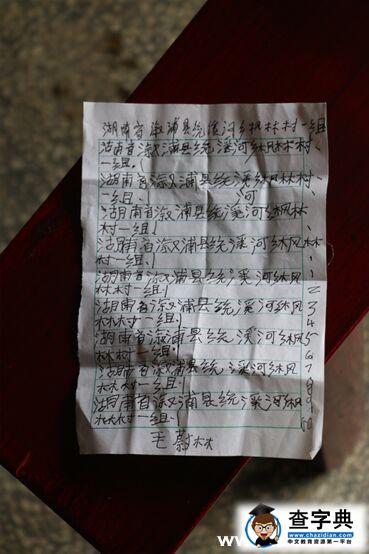 湖南省溆浦县统溪河乡枫林村一组
湖南省溆浦县统溪河枫林村
一组.
湖南省溆浦县统溪枫林村
一组. 河
湖南省溆浦县统溪河枫林
村一组.
湖南省溆浦县统溪河枫林
村一组.
湖南省溆浦县统溪河枫 1
林村一组. 2
湖南省溆浦县统溪河枫 3
林村一组. 4
湖南省溆浦县统溪河枫 5
林村一组. 6
湖南省溆浦县统溪河枫 7
林村一组 8
湖南省溆浦县统溪河枫 9
林村一组. 10
毛蔚林
查字典
www.chazidian.com
中文教育资源第一平台